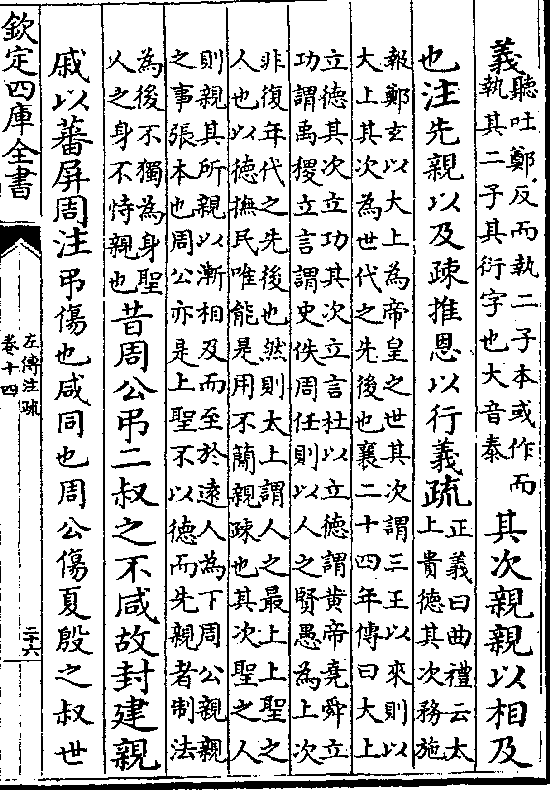 義聽吐鄭反而執二子本或作而
執其二子其衍字也大音泰其次親親以相及
也注先親以及疎推恩以行義疏正義曰曲禮云太
上貴德其次務施
報鄭玄以大上為帝皇之世其次謂三王以來則以
大上其次為世代之先後也襄二十四年傳曰大上
立德其次立功其次立言杜以立德謂黄帝堯舜立
功謂禹稷立言謂史佚周任則以人之賢愚為上次
非復年代之先後也然則太上謂人之最上上聖之
人也以德撫民唯能是用不簡親疎也其次聖之人
則親其所親以漸相及而至於遠人為下周公親親
之事張本也周公亦是上聖不以德而先親者制法
為後不獨為身聖
人之身不恃親也昔周公吊二叔之不咸故封建親
戚以蕃屏周注吊傷也咸同也周公傷夏殷之叔世
欽定四庫全書
左傳注疏
卷十四
二十六